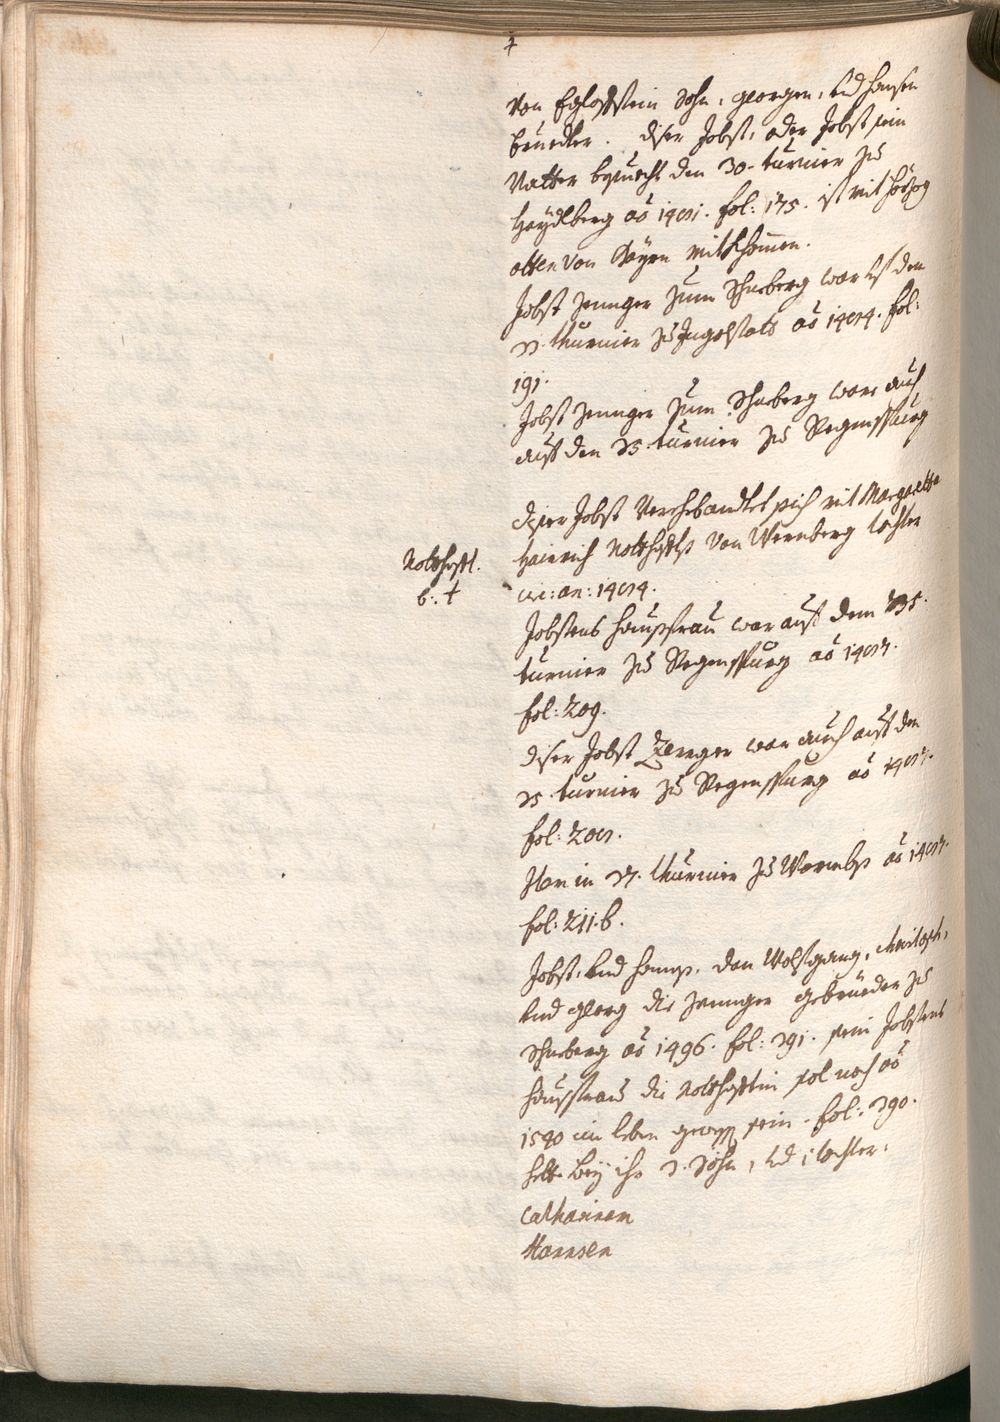 von Eglofstein Sohn, georgen, und hansen
brueder. diser Jobst, oder Jobst sein
Vatter besuecht den 30. turnier zu
Haydlberg aõ 1481. fol: 175. ist mit herzog
otten von Bayrn mitkhomen.
Jobst zennger zum Schneeberg war auf den
33. thurnier zu Ingolstatt aõ 1484. fol:
191.
Jobst zennger zum Schneeberg ware auch
auf den 35. turnier zu Regenspurg
diser Jobst Verehebandlet sich mit Margaretha
Hainrich Notthaffts von Wernberg tochter
circ: an: 1484.
Notthafft.
b. †
Jobstens hausfrau war auf dem 35.
turnier zu Regenspurg aõ 1487.
fol: 209.
diser Jobst Zennger war auch auf den
35. turnier zu Regenspurg aõ 1487.
fol: 208.
Item in 36. thurnier zu Wormbs aõ 1487.
fol: 211. b.
Jobst, und hanns, dan Wolfgang, christoph,
und georg die zennger gebrueder zu
Schneeberg aõ 1496. fol: 391. sein Jobstens
hausfrau die Notthafftin sol noch aõ
1540 im leben gewest sein. fol: 390.
hett bey ihr 3. Söhn, und 1 tochter.
Catharinam
Hannsen